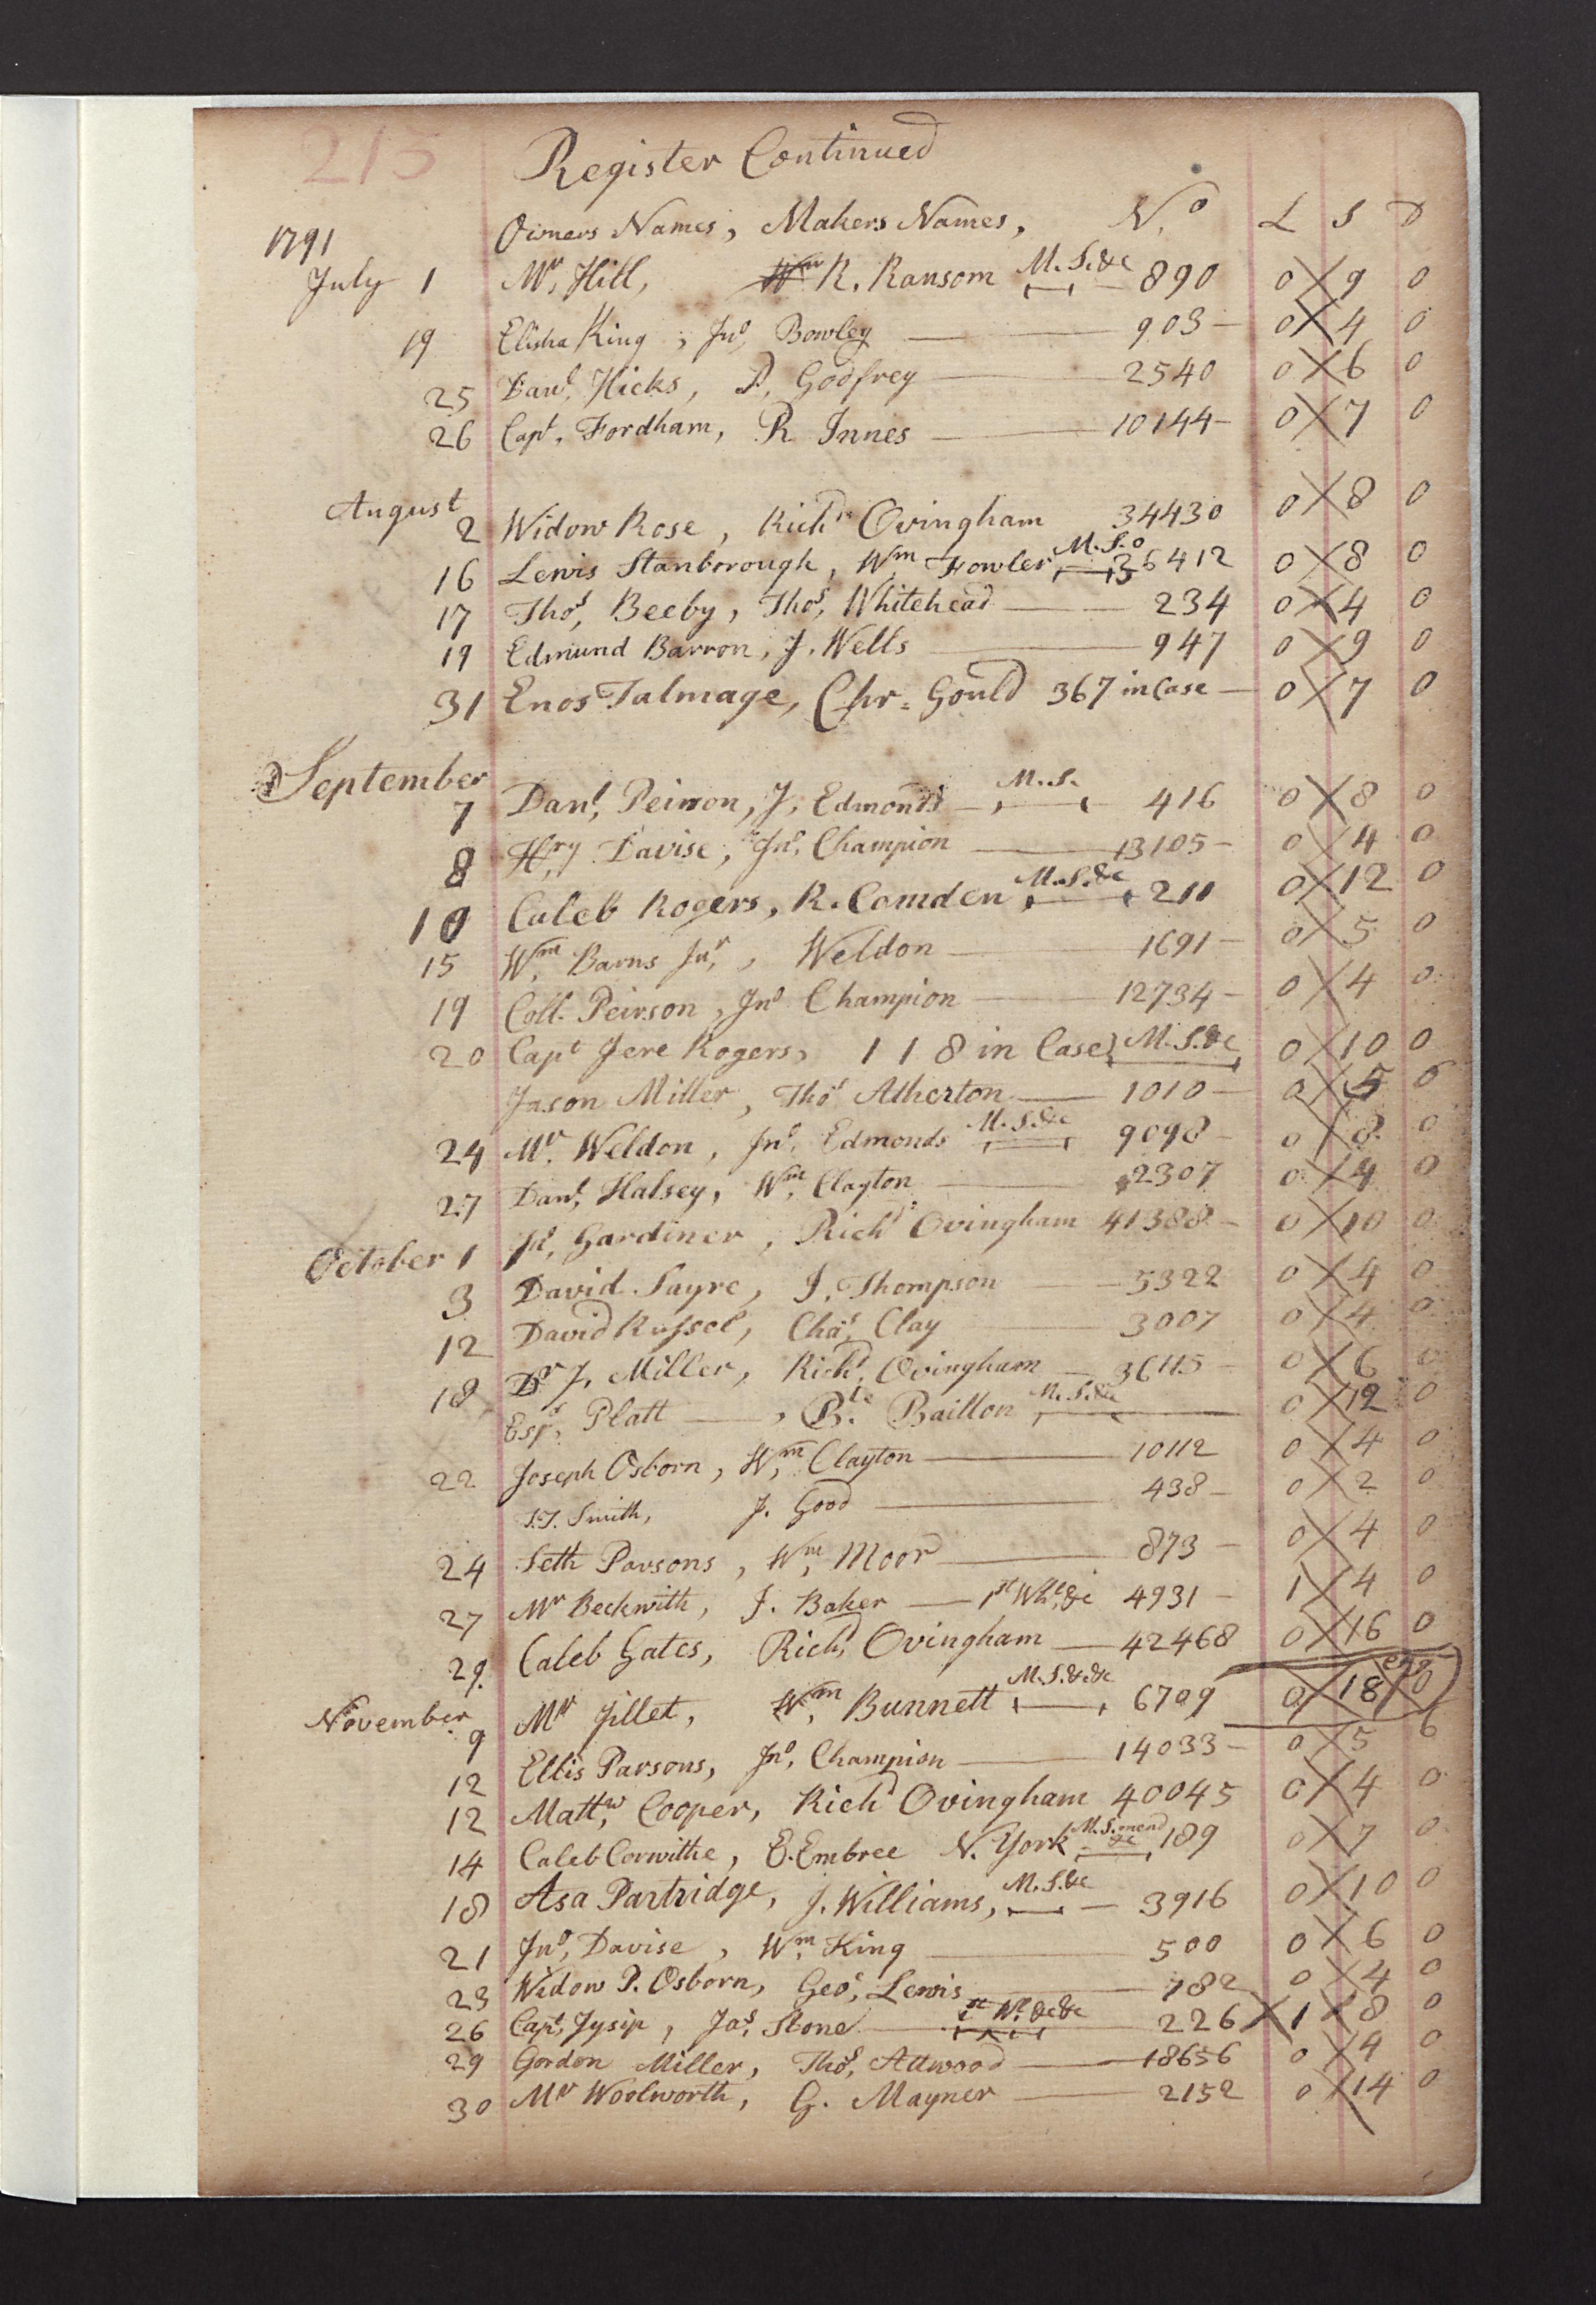 213
Register Continued
1791 Owners Names, Makers Names, No. L S D
July 1 Mr. Hill, Wm R. Ransom M.S.&c 890 0 9 0
19 Elisha King, Jno. Bowley 903 0 4 0
25 Danl. Hicks, D. Godfrey 2540 0 6 0
26 Capt. Fordham, R Innes 10144 0 7 0
August 2 Widow Rose, Richd. Ovingham 34430 0 8 0
16 Lewis Stanborough, Wm. Fowler M.S. 26412 0 8 0
17 Thos. Beeby, Thos. Whitehead 234 0 4 0
19 Edmund Barron, J. Wells 947 0 9 0
31 Enos Talmage, Chr. Gould 367 in Case 0 7 0
September 7 Danl. Peirson, J. Edmonds M.S. 416 0 8 0
8 Hry. Davise, Jno. Champion 13105 0 4 0
10 Caleb Rogers, R. Comden M.S.&c 211 0 12 0
15 Wm. Barns Junr., Weldon 1691 0 5 0
19 Coll. Peirson, Jno Champion 12734 0 4 0
20 Capt Jere Rogers, 118 in Case M.S.&c 0 10 0
Jason Miller, Thos Atherton 1010 0 5 6
24 Mr. Weldon, Jno. Edmonds M.S.&c 9098 0 8 0
27 Danl. Halsey, Wm. Clayton 2307 0 4 0
October 1 Gardiner, Richd. Ovingham 41388 0 10 0
3 David Sayre, J. Thompson 5322 0 4 0
12 David Russel, Chas. Clay 3007 0 4 0
18 Dr J. Miller, Richd. Ovingham 36115 0 6 0
Esqr. Platt, Bte. Baillon M.S.&c 0 12 0
22 Joseph Osborn, Wm. Clayton 10112 0 4 0
S.T. Smith, J. Good 438 0 2 0
24 Seth Parsons, Wm. Moor 873 0 4 0
27 Mr Beckwith, J. Baker 1st Whl.&c 4931 1 4 0
29 Caleb Gates, Richd. Ovingham 42468 0 16 0
November 9 Mr Jillet, Wm. Bunnett M.S.&c&c 6709 0 18 0
12 Ellis Parsons, Jno. Champion 14033 0 5 6
12 Mattw. Cooper, Richd Ovingham 40045 0 4 0
14 Caleb Corwithe, E. Embree N. York M.S. mend &c 189 0 7 0
18 Asa Partridge, J. Williams, M.S.&c 3916 0 10 0
21 Jno. Davise, Wm. King 500 0 6 0
23 Widow P. Osborn, Geo. Lewis 782 0 4 0
26 Capt. Jysip, Jas. Stone &c&c 226 1 8 0
29 Gordon Miller, Thos. Attwood 18656 0 4 0
30 Mr Woolworth, G. Mayner 2152 0 14 0